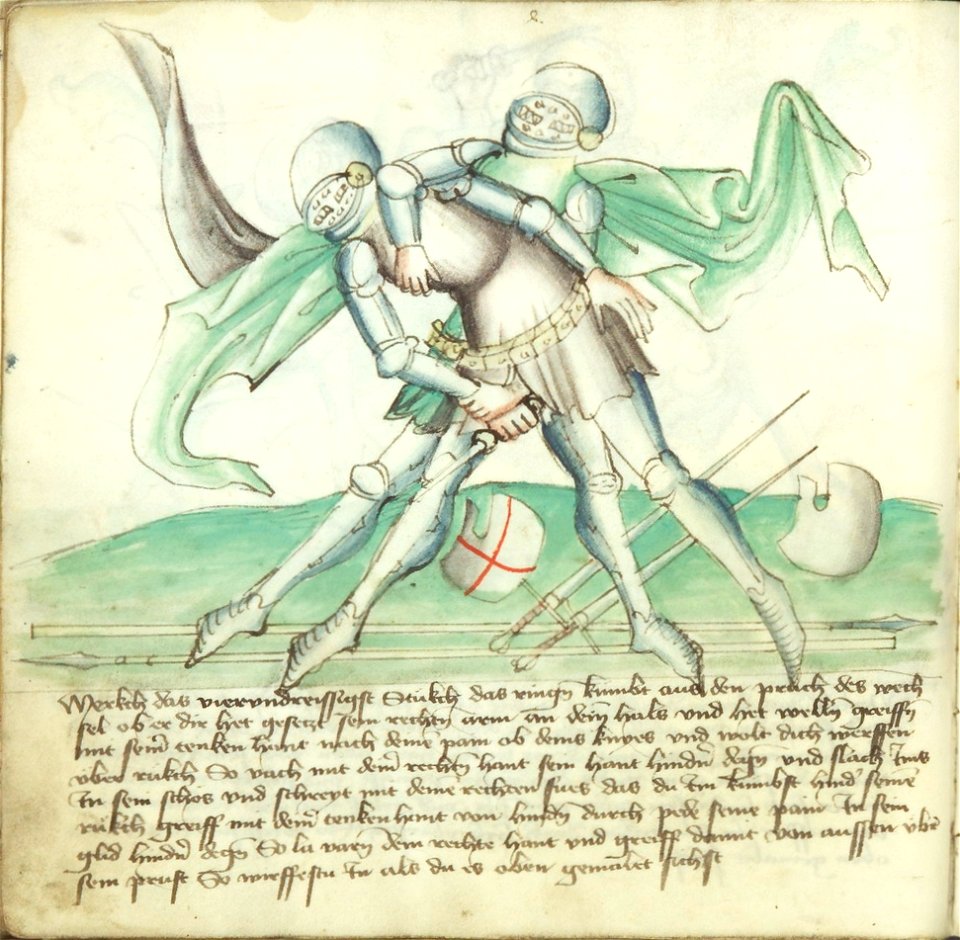 Merkch das vierundreissigist Stükch das ringn kumbt aus den pruch des wech
sel ob er dir het gesetzt sein rechtn arm an dein hals und het welln greiffn
mit seinē tenken hant nach deinē pain ob deins knyes und wolt dich werffen
über rukch So vach mit deinē rechtn hant sein hant hindn̄ degn̄ und slach ims
in sein schos und schreyt mit deinē rechten fues das du im kumbst hind̄ seinē
rukch greiff mit deinē tenken hant von hindn̄ durch pede seine pain in sein
glid hindn̄ degn̄ So la varn̄ dein rechte hant und greiff damit von aussen üb̄
sein prust So wirffestu in als du es oben gemalet sichst